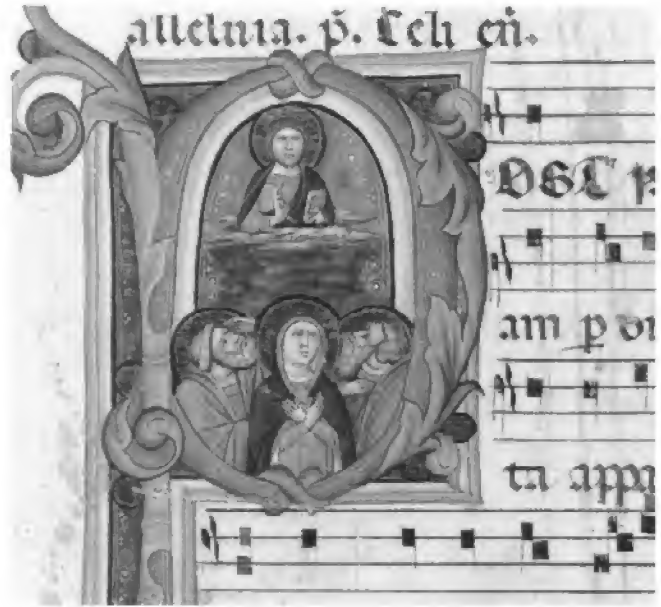 alleluia. p̄. Celi en̄.
OST p
am ꝑ di
ta appa